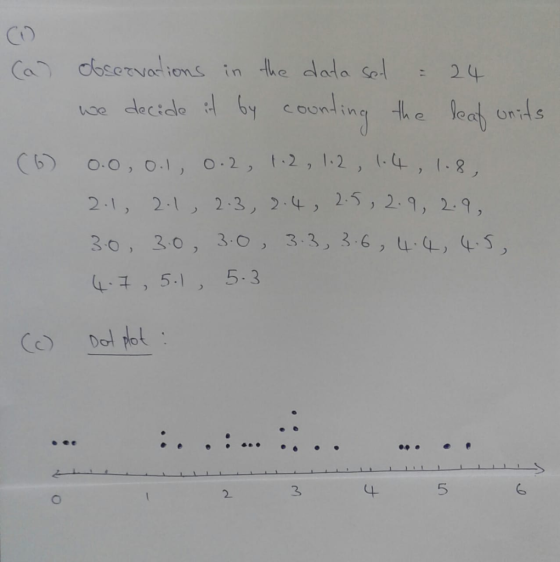 (1)
(a) Observations in the data set = 24
we decide it by counting the leaf units
(b) 0.0, 0.1, 0.2, 1.2, 1.2, 1.4, 1.8,
2.1, 2.1, 2.3, 2.4, 2.5, 2.9, 2.9,
3.0, 3.0, 3.0, 3.3, 3.6, 4.4, 4.5,
4.7, 5.1, 5.3
(c) Dot plot :
0 1 2 3 4 5 6